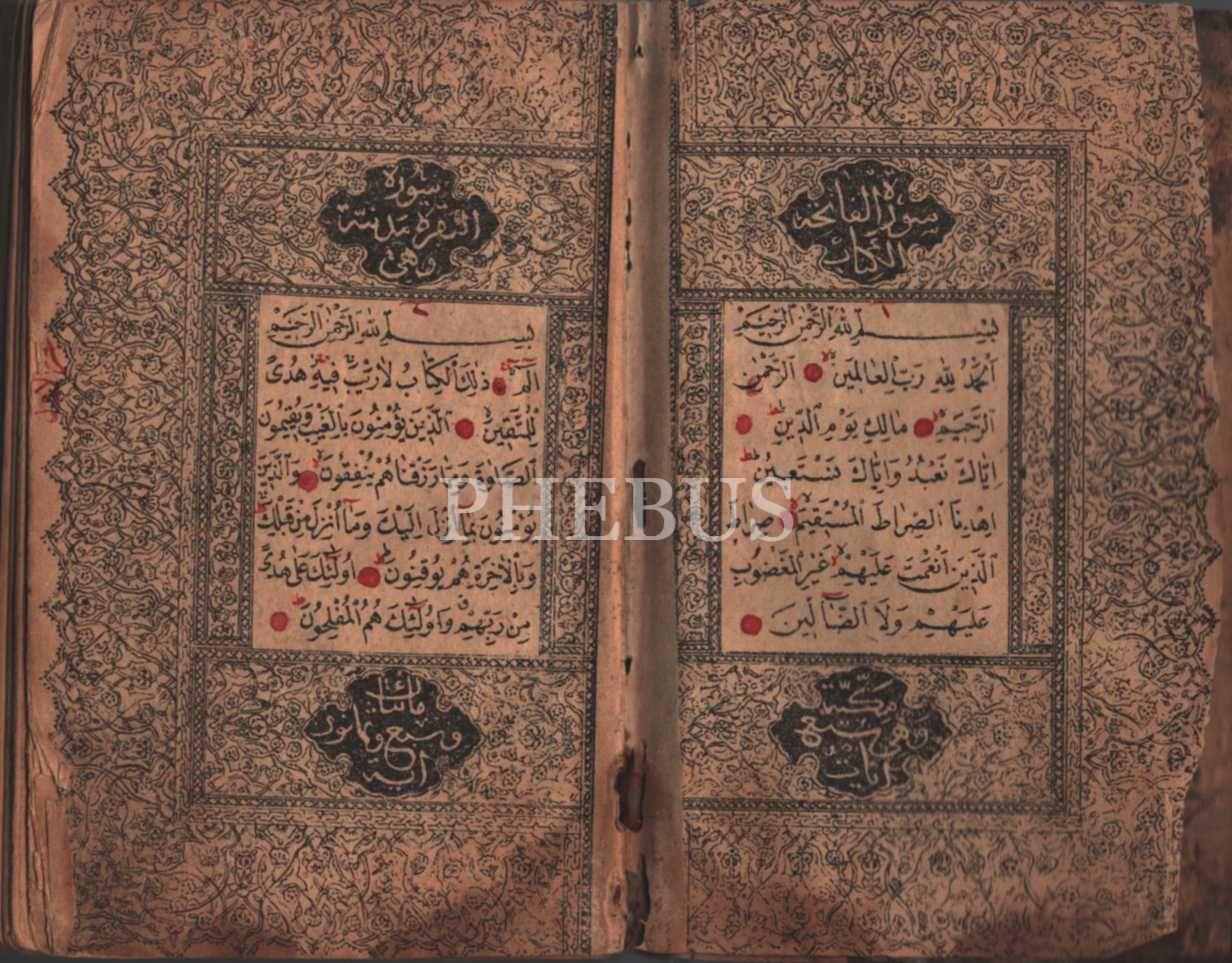 سورة الفاتحة
الكتاب
بسم الله الرحمن الرحيم
اَلْحَمْدُ لِلّٰهِ رَبِّ الْعَالَمِينَ الرَّحْمٰنِ
الرَّحِيمِ مَالِكِ يَوْمِ الدِّينِ
اِيَّاكَ نَعْبُدُ وَاِيَّاكَ نَسْتَعِينُ
اِهْدِنَا الصِّرَاطَ الْمُسْتَقِيمَ صِرَاطَ
الَّذِينَ اَنْعَمْتَ عَلَيْهِمْ غَيْرِ الْمَغْضُوبِ
عَلَيْهِمْ وَلَا الضَّآلِّينَ
مكية
وهي سبع
آيات
سورة
البقرة مدنية
وهي
بسم الله الرحمن الرحيم
الٓمٓ ذٰلِكَ الْكِتَابُ لَا رَيْبَ فِيهِ هُدًى
لِلْمُتَّقِينَ اَلَّذِينَ يُؤْمِنُونَ بِالْغَيْبِ وَيُقِيمُونَ
الصَّلٰوةَ وَمِمَّا رَزَقْنَاهُمْ يُنْفِقُونَ وَالَّذِينَ
يُؤْمِنُونَ بِمَآ اُنْزِلَ اِلَيْكَ وَمَآ اُنْزِلَ مِنْ قَبْلِكَ
وَبِالْاٰخِرَةِ هُمْ يُوقِنُونَ اُولٰٓئِكَ عَلٰى هُدًى
مِنْ رَبِّهِمْ وَاُولٰٓئِكَ هُمُ الْمُفْلِحُونَ
مائتان
وسبع وثمانون
آية
PHEBUS